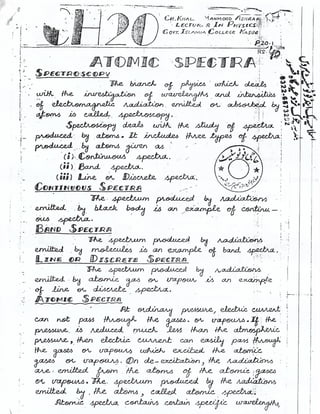 CH20
CH. KHAL MAHMOOD ASHRAF
LECTURER IN PHYSICS
GOVT. ISLAMIA COLLEGE KASUR
P.20-1
ATOMIC SPECTRA
SPECTROSCOPY
The branch of physics which deals
with the investigation of wavelengths and intensities
of electromagnetic radiation emitted or absorbed by
atoms is called spectroscopy.
Spectroscopy deals with the study of spectra
produced by atoms. It includes three types of spectra
produced by atoms given as
(i) Continuous spectra.
(ii) Band spectra.
(iii) Line or Discrete spectra.
CONTINUOUS SPECTRA
The spectrum produced by radiations
emitted by black body is an example of continu-
ous spectra.
BAND SPECTRA
The spectrum produced by radiations
emitted by molecules is an example of band spectra.
LINE OR DISCRETE SPECTRA
The spectrum produced by radiations
emitted by atomic gas or vapour is an example
of line or discrete spectra.
ATOMIC SPECTRA
At ordinary pressure, electric current
can not pass through the gases or vapours. If the
pressure is reduced much less than the atmospheric
pressure, then electric current can easily pass through
the gases or vapours which excited the atomic
gases or vapours. On de-excitation, the radiations
are emitted from the atoms of the atomic gases
or vapours. The spectrum produced by the radiations
emitted by the atoms, called atomic spectra.
Atomic spectra contains certain specific wavelengths